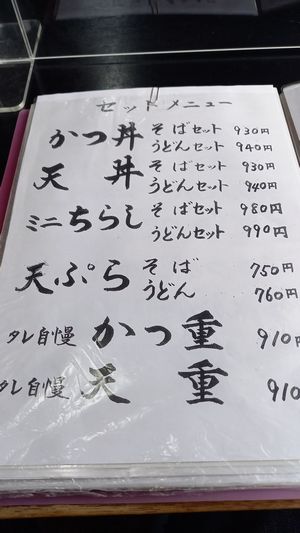 セットメニュー
かつ丼 そばセット 930円
うどんセット 940円
天丼 そばセット 930円
うどんセット 940円
ミニちらし そばセット 980円
うどんセット 990円
天ぷら そば 750円
うどん 760円
タレ自慢 かつ重 910円
タレ自慢 天重 910